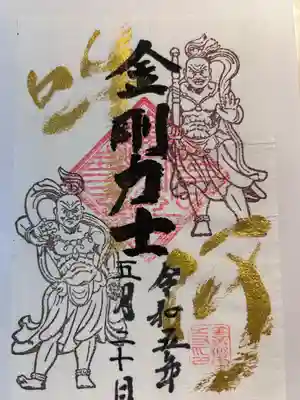 阿
吽
金剛力士
令和五年
五月三十日